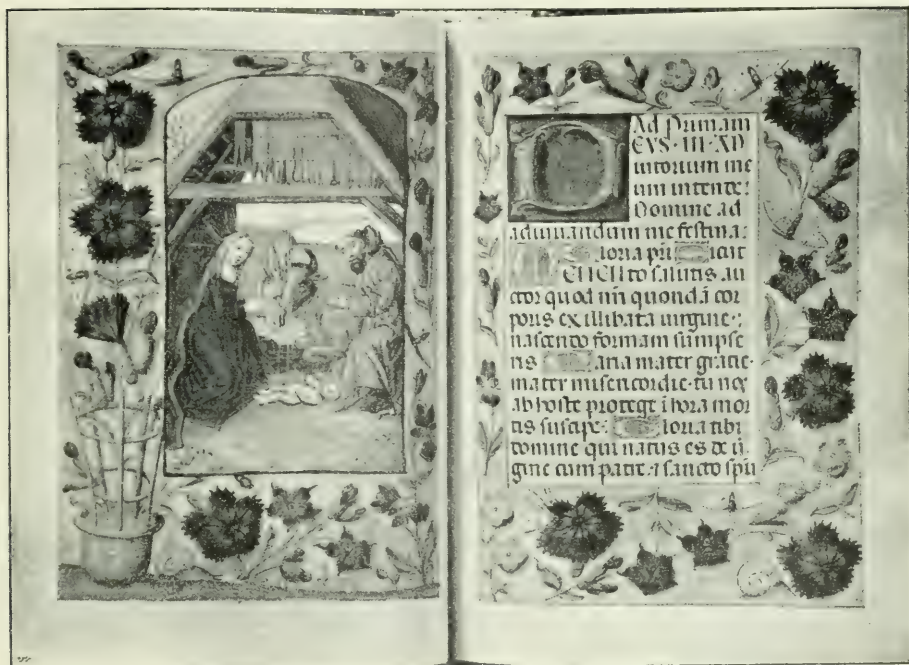 Ad Primam
EVS · IN · AD
iutorium me
um intende:
Domine ad
adiuuandum me festina:
loria pri icut
EMENTO salutis au
ctor quod nr̄i quondā cor
poris ex illibata uirgine:
nascendo formam sumpse
ris aria mater gratie
mater misericordie tu nos
ab hoste protege ī hora mor
tis suscipe: loria tibi
domine qui natus es de ū
gine cum patre ⁊ sancto spū